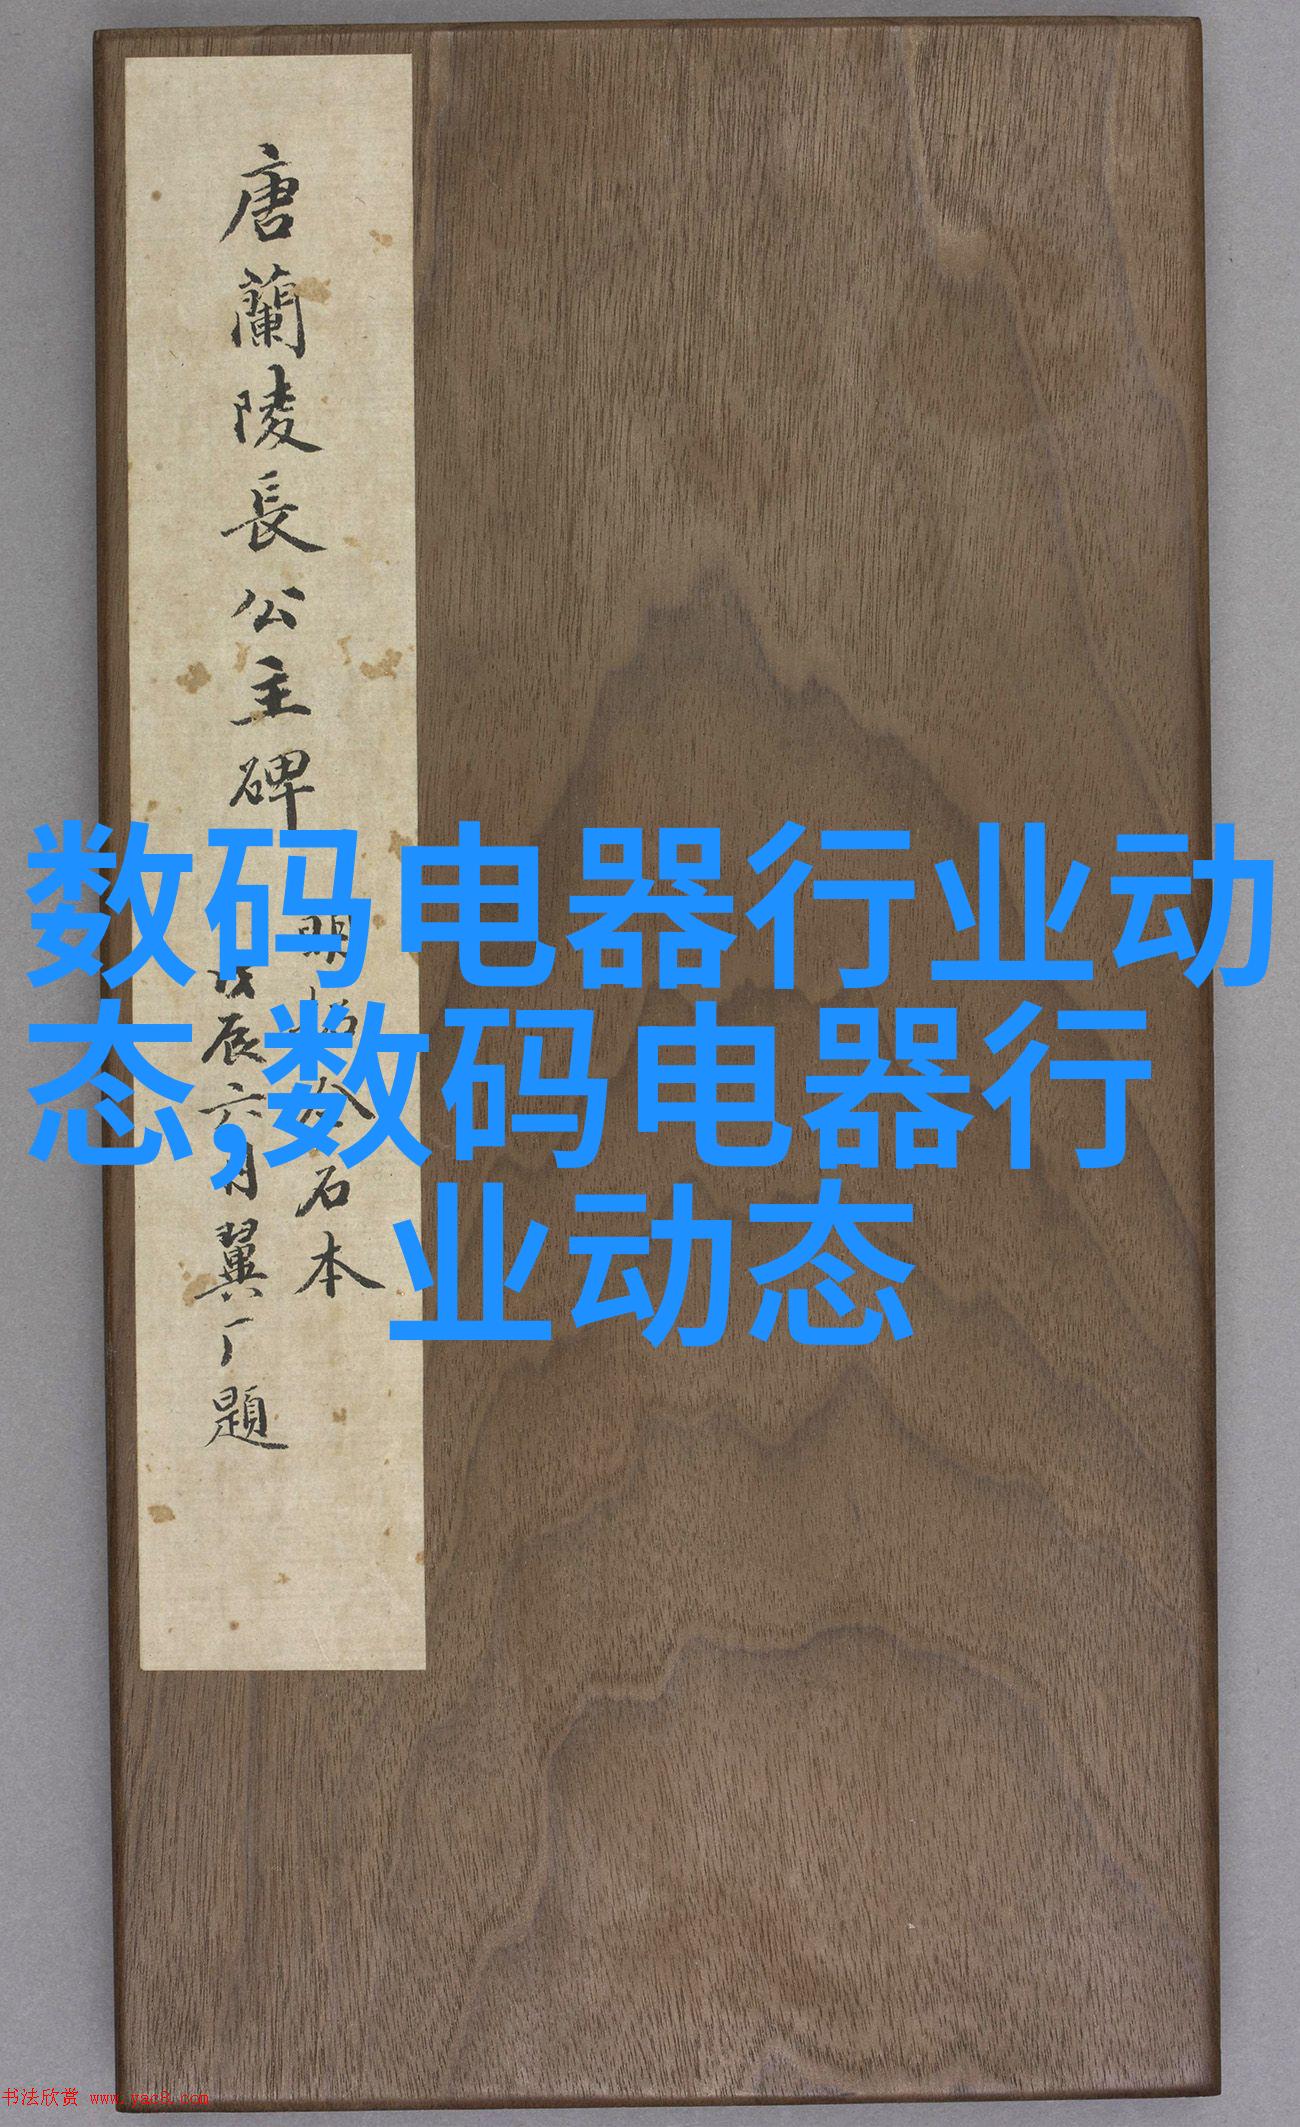 唐蘭陵長公主碑
明拓金石本
戊辰六月翼厂題
数码电器行业动
态,数码电器行
业动态
书法欣赏 www.yac8.com